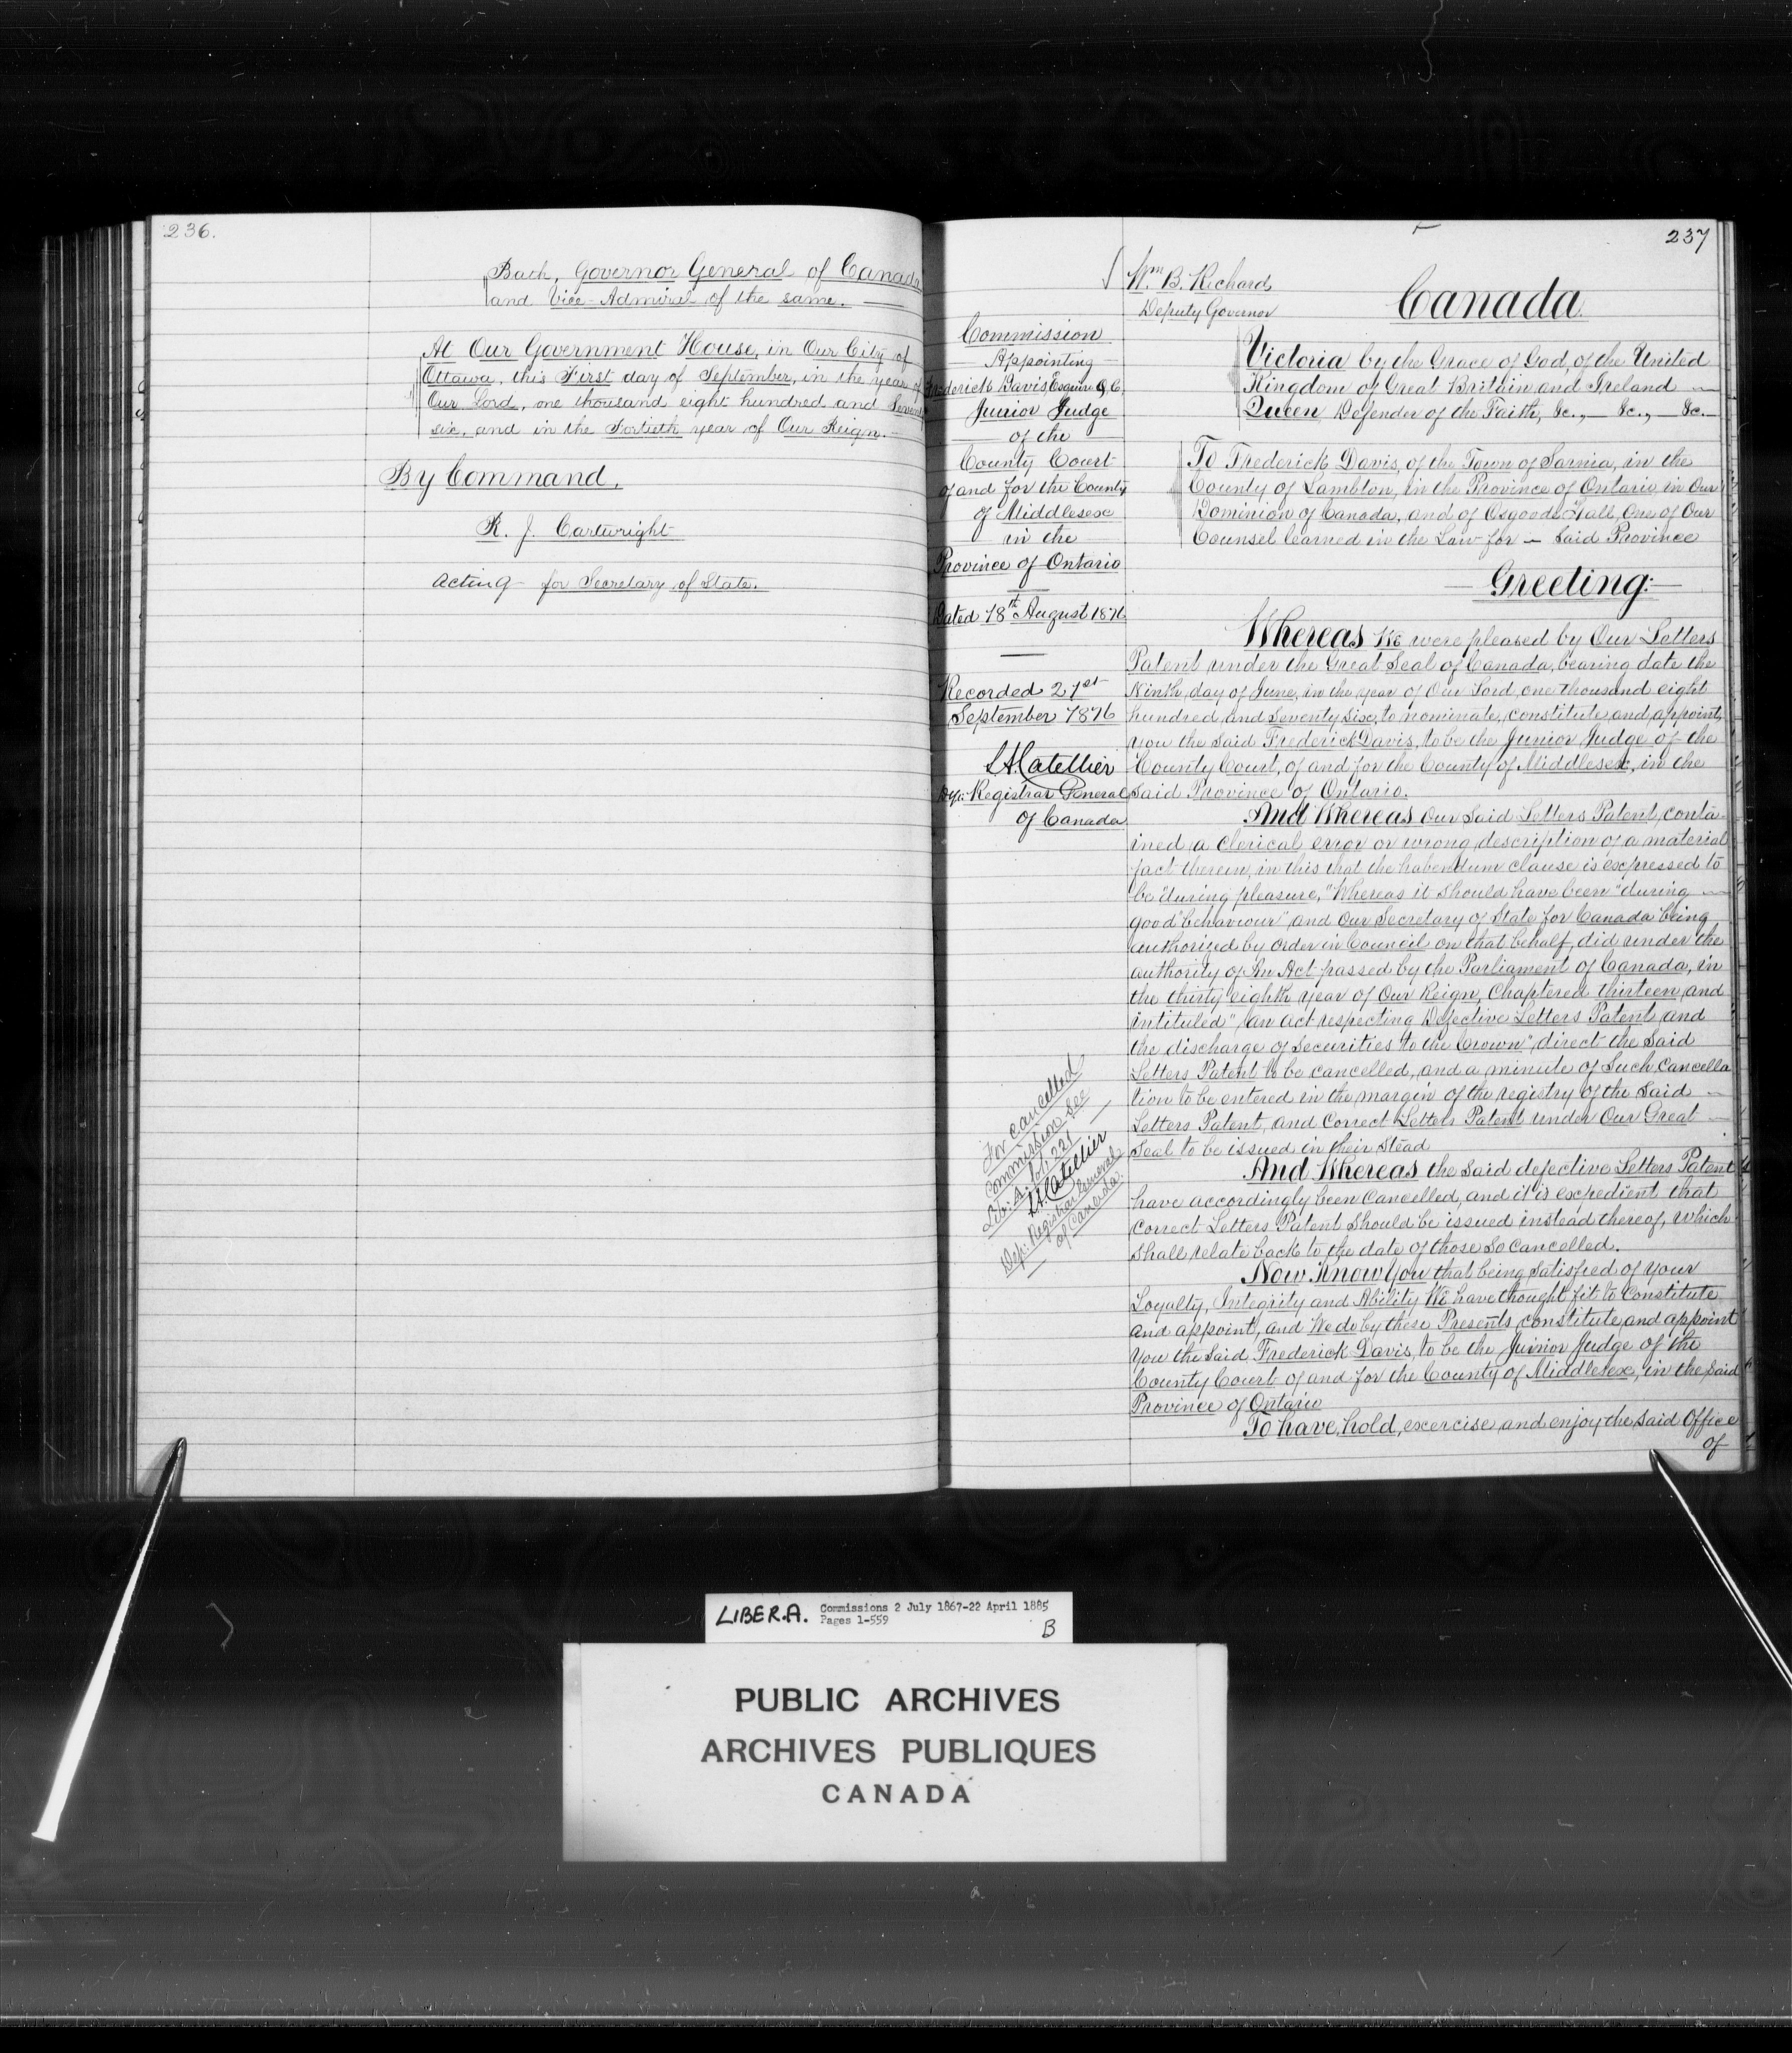 236.
Bath, Governor General of Canada
and Vice-Admiral of the same.
At Our Government House, in Our City of
Ottawa, this First day of September, in the year of
Our Lord, one thousand eight hundred and Seventy
six, and in the Fortieth year of Our Reign.
By Command,
R. J. Cartwright
Acting for Secretary of State.
237
Wm B. Richard
Deputy Governor
Canada
Commission
Appointing
Frederick Davis, Esquire Q.C.
Junior Judge
of the
County Court
of and for the County
of Middlesex
in the
Province of Ontario
Dated 18th August 1876
Recorded 21st
September 1876
LACatellier
Dep: Registrar General
of Canada
For cancelled
Commission see
Lib: A: fol: 221
LACatellier
Dep: Registrar General
of Canada.
Victoria by the Grace of God, of the United
Kingdom of Great Britain and Ireland
Queen, Defender of the Faith, &c., — &c., — &c. —
To Frederick Davis, of the Town of Sarnia, in the
County of Lambton, in the Province of Ontario in Our
Dominion of Canada, and of Osgoode Hall, One of Our
Counsel learned in the Law for — Said Province
Greeting:
Whereas We were pleased by Our Letters
Patent under the Great Seal of Canada, bearing date the
Ninth day of June, in the year of Our Lord, one thousand eight
hundred and Seventy Six, to nominate, constitute and appoint,
you the Said Frederick Davis, to be the Junior Judge of the
County Court, of and for the County of Middlesex, in the
Said Province of Ontario.
And Whereas Our Said Letters Patent, conta-
ined a clerical error or wrong description of a material
fact therein, in this that the habendum clause is expressed to
be "during pleasure," Whereas it Should have been "during
good behaviour" and Our Secretary of State for Canada being
authorized by order in Council on that behalf, did under the
authority of An Act passed by the Parliament of Canada, in
the thirty eighth year of Our Reign, Chaptered thirteen and
intituled "an act respecting Defective Letters Patent and
the discharge of Securities to the Crown", direct the Said
Letters Patent to be cancelled, and a minute of Such Cancella
tion to be entered in the margin of the registry of the Said
Letters Patent, and correct Letters Patent under Our Great
Seal to be issued in their Stead
And Whereas the Said defective Letters Patent
have accordingly been Cancelled, and it is expedient that
Correct Letters Patent Should be issued instead thereof, which
Shall relate back to the date of those So Cancelled.
Now Know You that being Satisfied of your
Loyalty, Integrity and Ability We have thought fit to Constitute
and appoint, and We do by these Presents constitute and appoint
You the Said Frederick Davis, to be the Junior Judge of the
County Court of and for the County of Middlesex, in the Said
Province of Ontario
To have, hold, exercise and enjoy the Said Office
of
LIBER.A. Commissions 2 July 1867-22 April 1885
Pages 1-559
B
PUBLIC ARCHIVES
ARCHIVES PUBLIQUES
CANADA